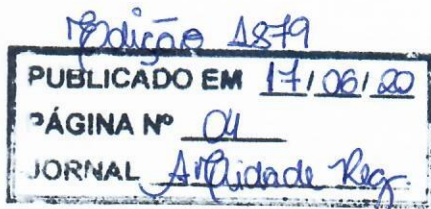 Edição 1879
PUBLICADO EM 17/06/20
PÁGINA Nº 04
JORNAL A Cidade Reg.